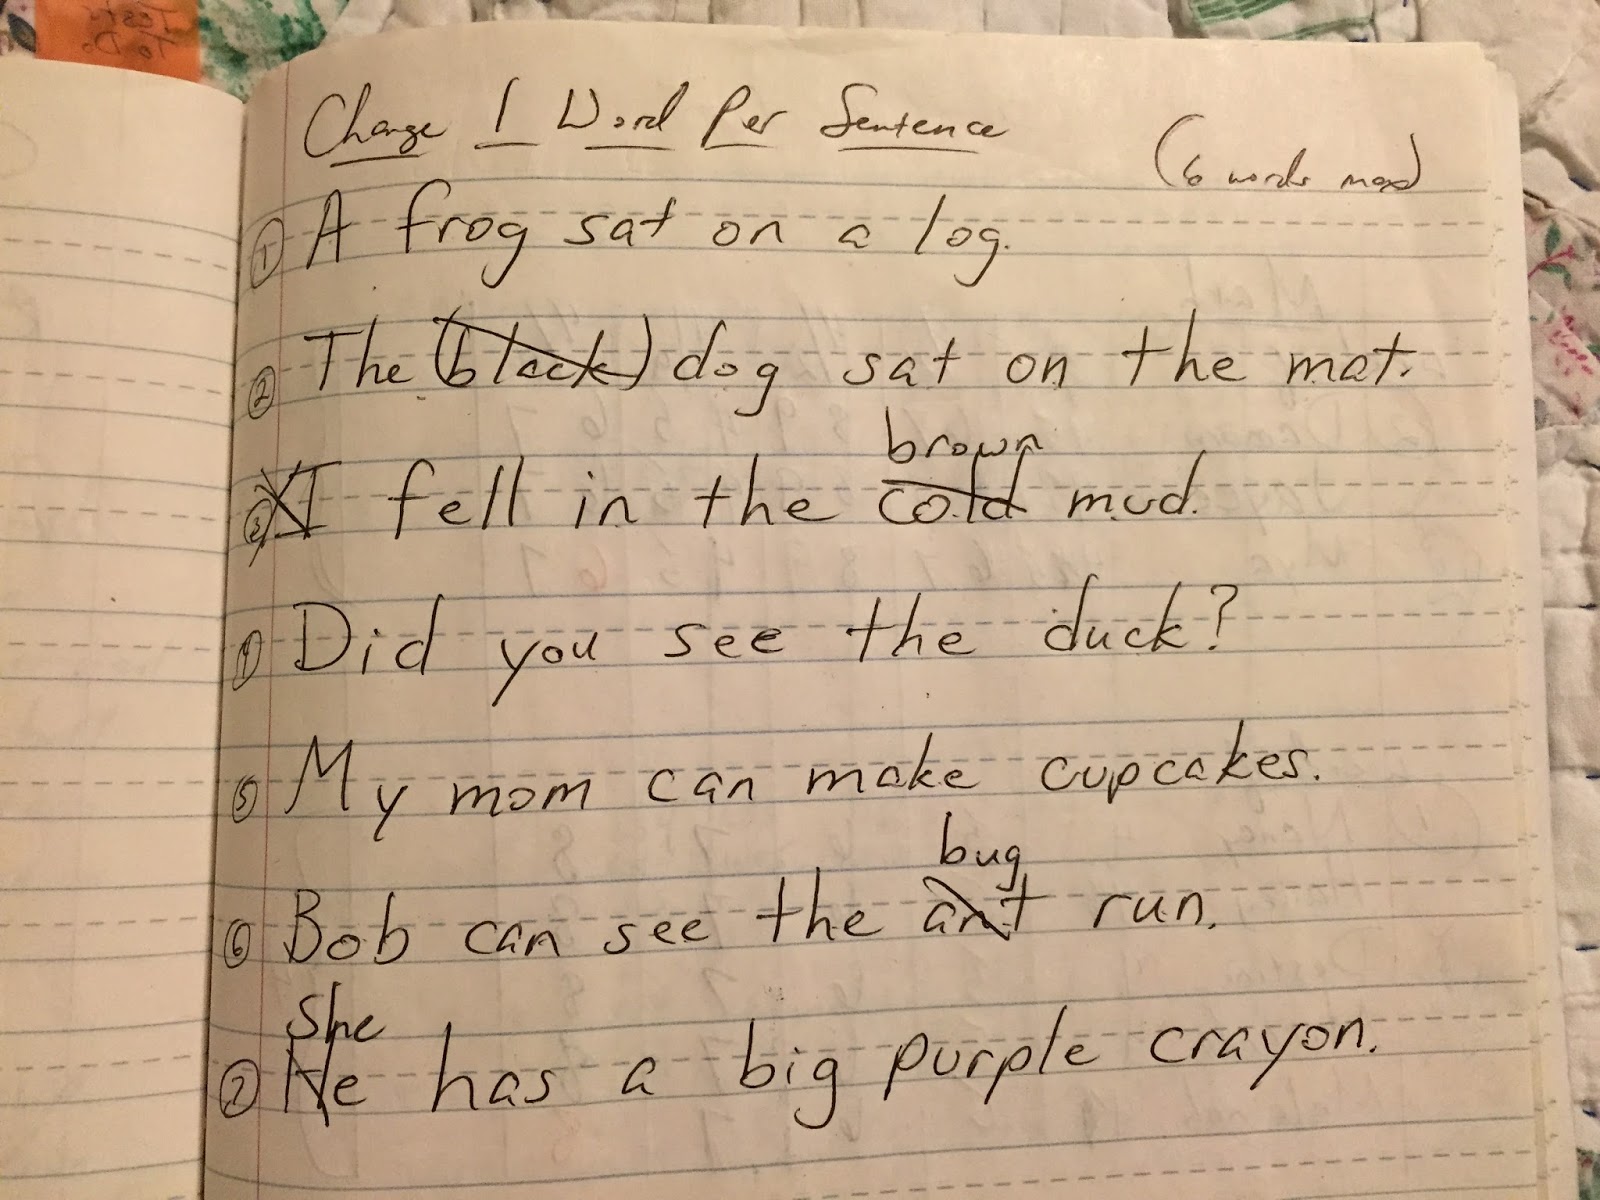 Tests
To Do
Change 1 Word Per Sentence
(6 words max)
① A frog sat on a log.
② The (black) dog sat on the mat.
brown
③ I fell in the cold mud.
④ Did you see the duck?
⑤ My mom can make cupcakes.
bug
⑥ Bob can see the ant run.
She
⑦ He has a big purple crayon.